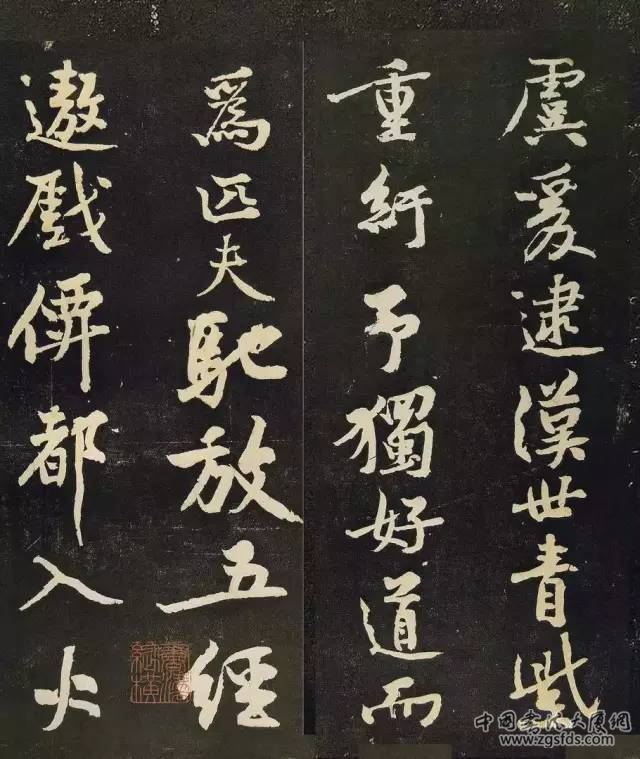 虞爰逮漢世青紫
重紆予獨好道而
爲匹夫馳放五經
遨戲僊都入火
中國書法大廈網
www.zgsfds.com